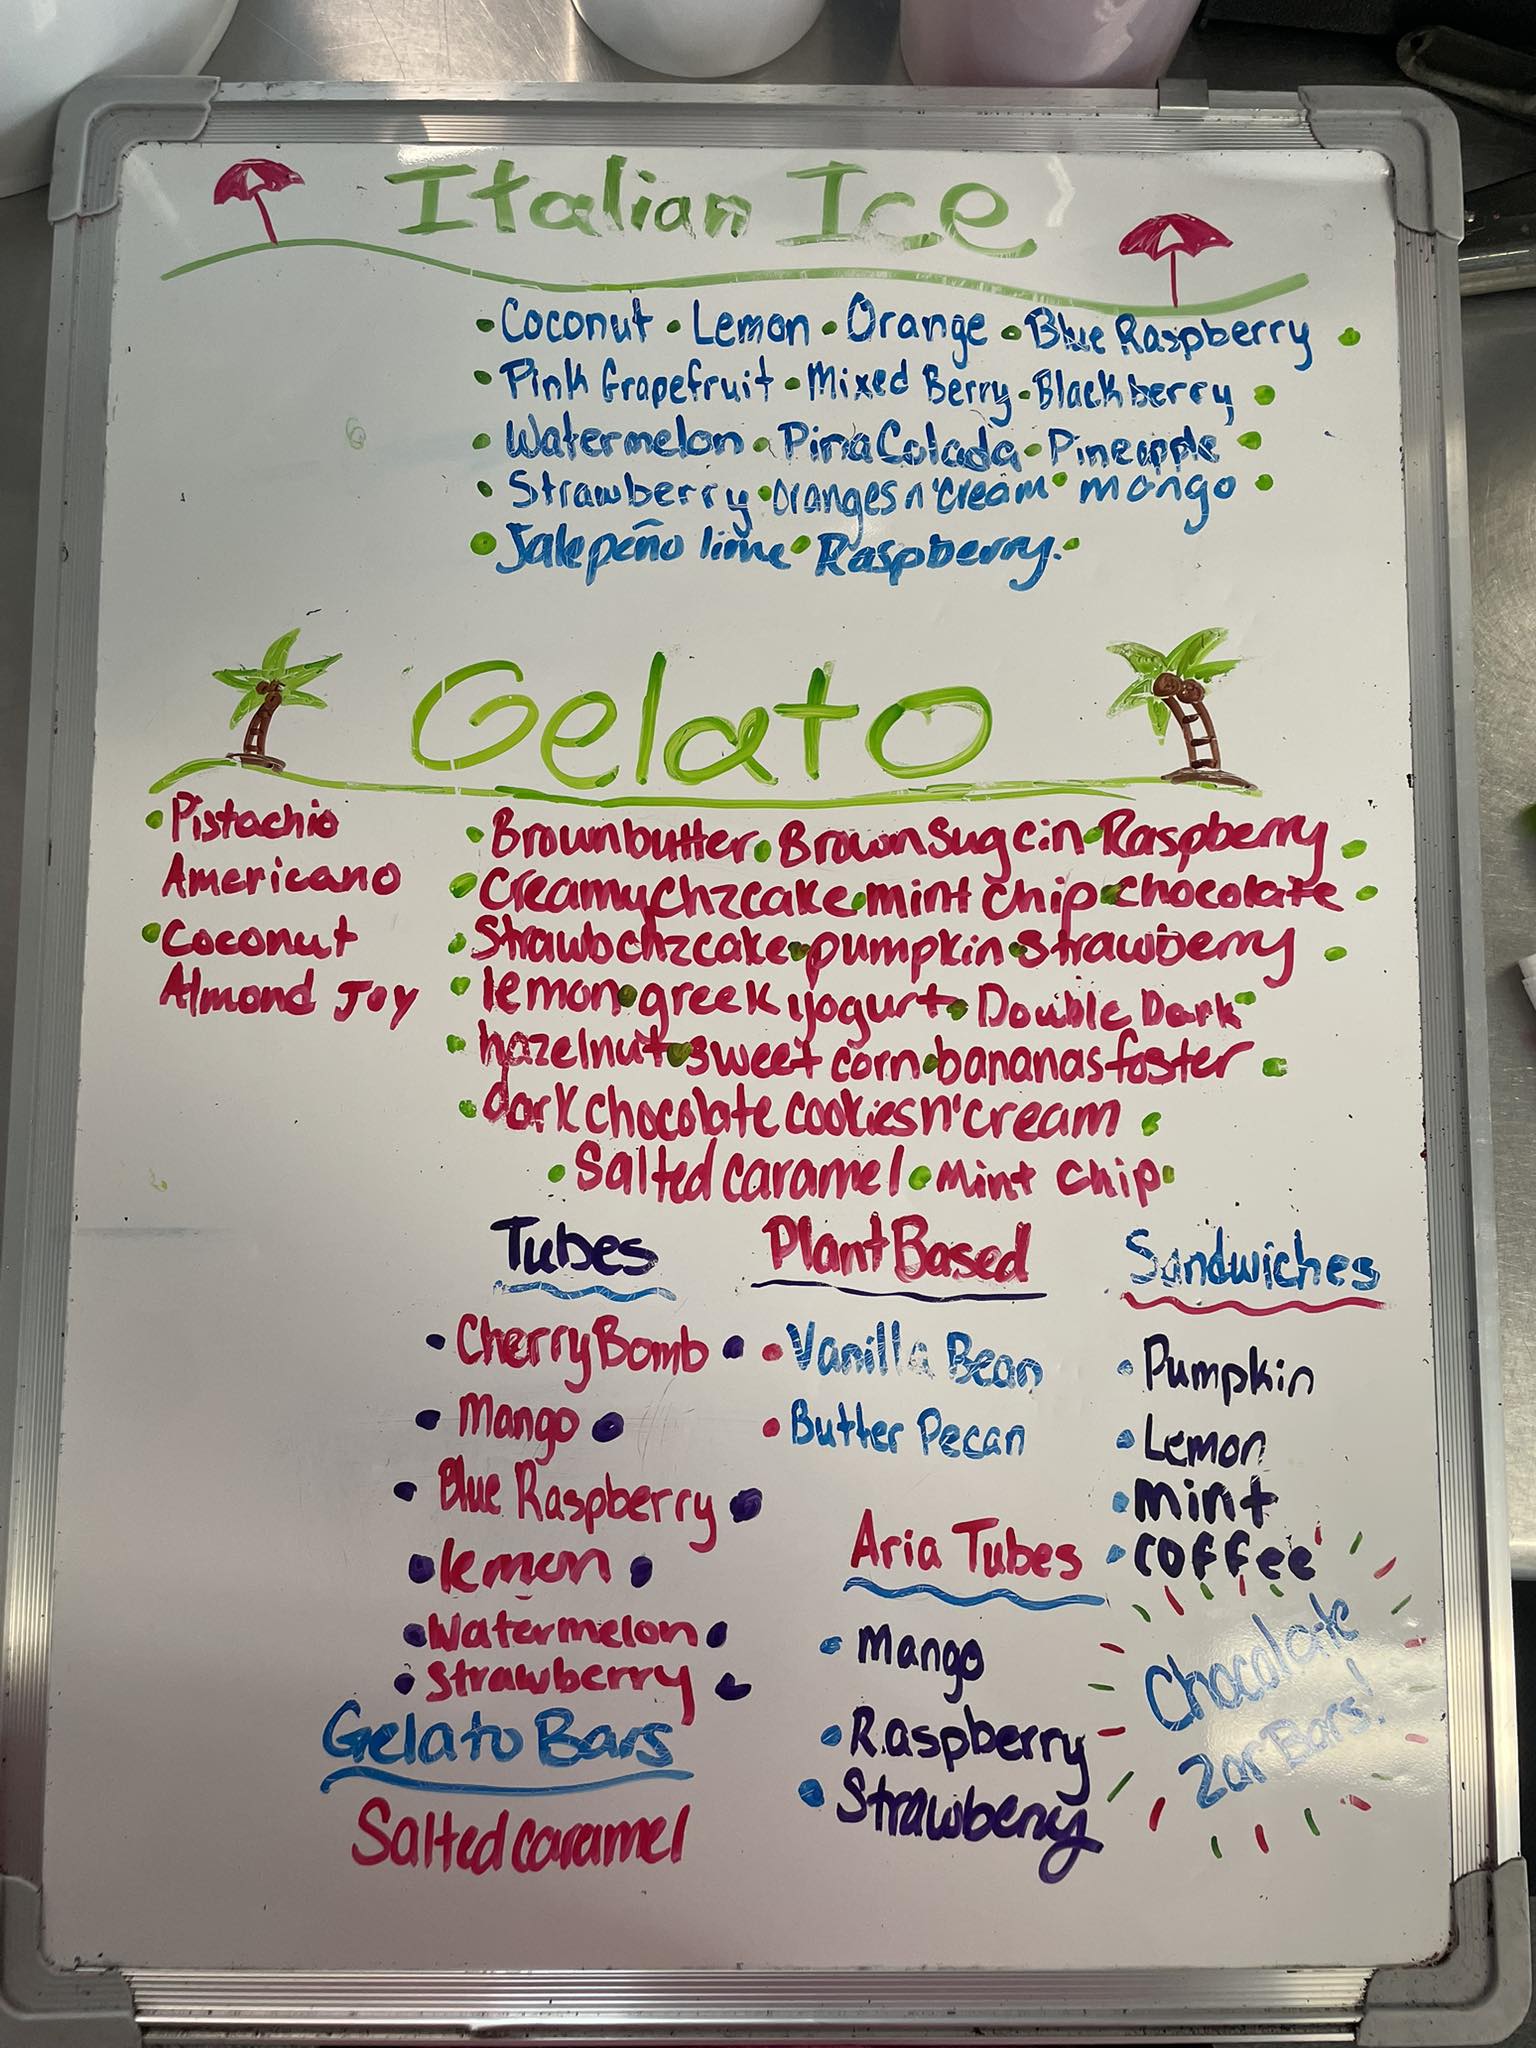 Italian Ice
• Coconut • Lemon • Orange • Blue Raspberry •
• Pink Grapefruit • Mixed Berry • Blackberry •
• Watermelon • Pina Colada • Pineapple •
• Strawberry • Oranges n' cream • mango •
• Jalepeño lime • Raspberry. •
Gelato
• Pistachio
Americano
• Coconut
Almond Joy
• Brownbutter • Brown Sug cin • Raspberry •
• Creamy Chzcake • mint chip • chocolate •
• Strawb chzcake • pumpkin • strawberry •
• lemon • greek yogurt • Double Dark •
• hazelnut • sweet corn • bananas foster •
• dark chocolate cookies n' cream •
• Salted caramel • Mint Chip •
Tubes
• Cherry Bomb •
• Mango •
• Blue Raspberry •
• lemon •
• Watermelon •
• Strawberry •
Gelato Bars
Salted caramel
Plant Based
• Vanilla Bean
• Butter Pecan
Aria Tubes
• Mango
• Raspberry
• Strawberry
Sandwiches
• Pumpkin
• Lemon
• mint
• coffee
Chocolate
Zar Bars!